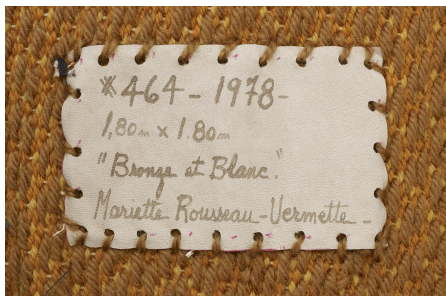 #464 - 1978 -
1,80m x 1.80m
"Bronze et Blanc."
Mariette Rousseau-Vermette -